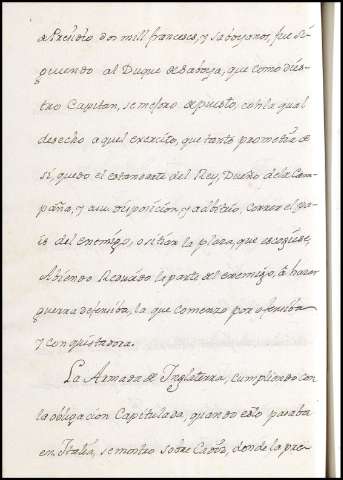 de Presidio dos mill franceses, y saboyanos, fue si-
guiendo al Duque de Saboya, que como dies-
tro Capitan, se mejoro de puesto, con la qual
desecho aquel exercito, que tanto prometia de
si, quedo el estandarte del Rey, Dueño de la Cam-
paña, y a su disposicion, y albitrio, correr el pa-
is del enemigo, o sitiar la plaza, que escogiese,
Abiendo Reduzido la parte del enemigo, la hazer
guerra defensiba, la que comenzo por ofensiba
y conquistadora.
La Armada de Inglaterra, cumpliendo con
la obligacion Capitulada, quando esto pasaba
en Italia, se mostro sobre Cadiz, donde la pre-